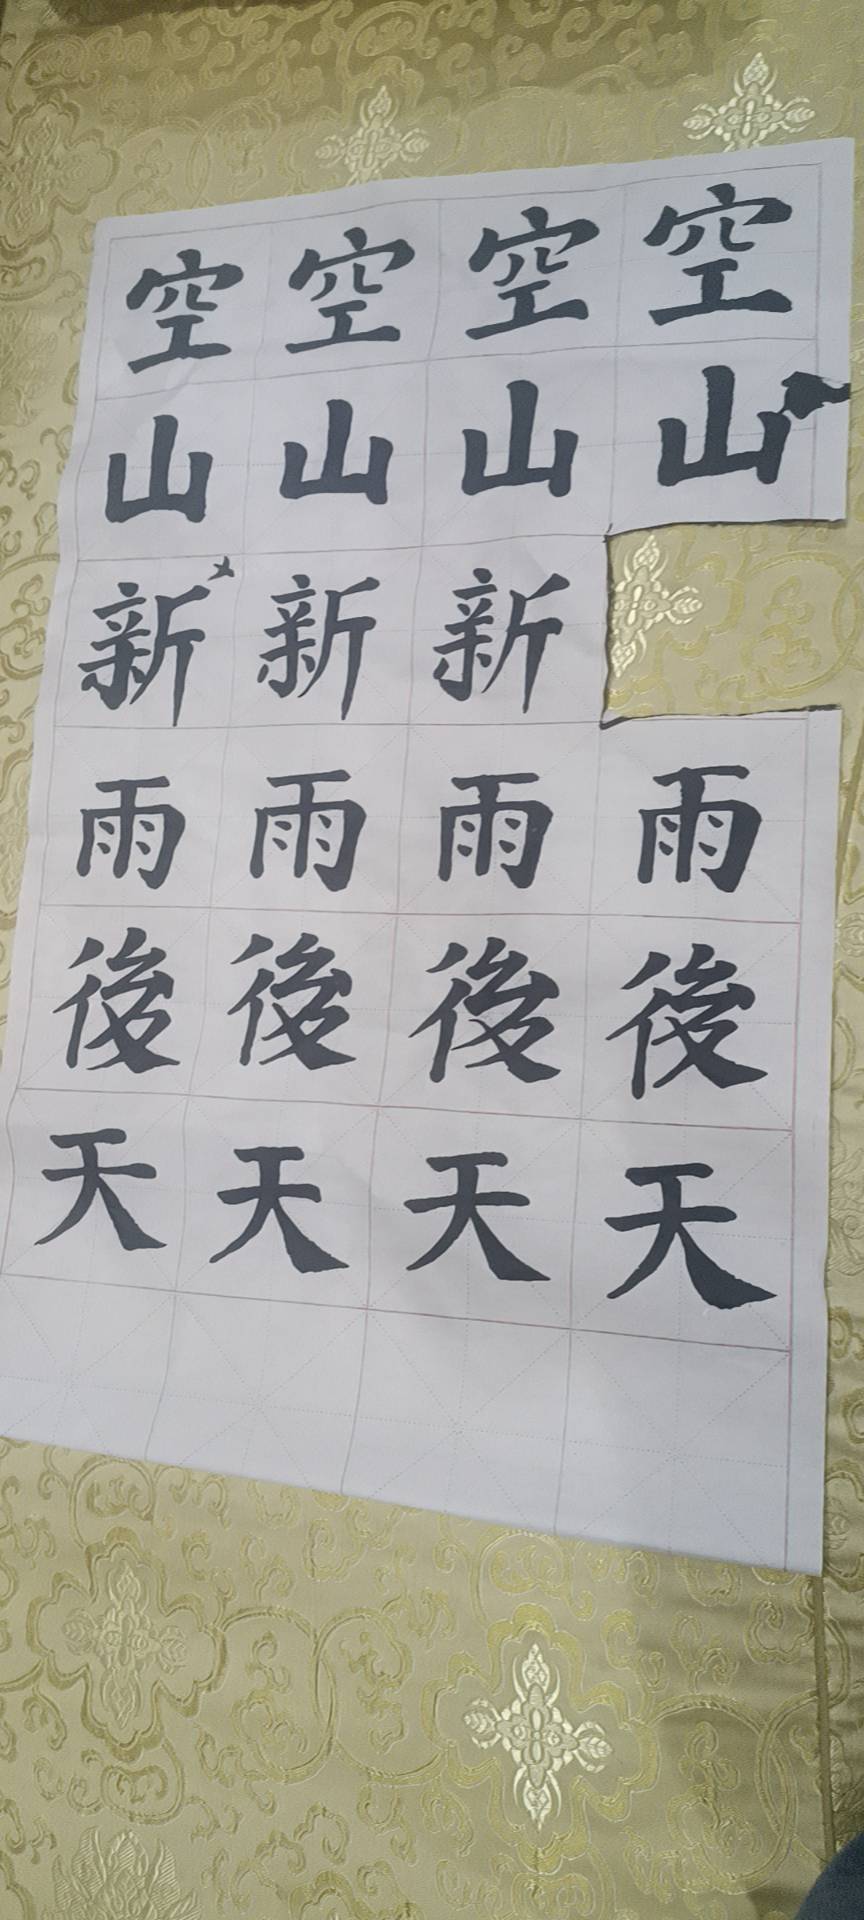 空山雨後天
空山新雨後天
空山新雨後天
空山新雨後天